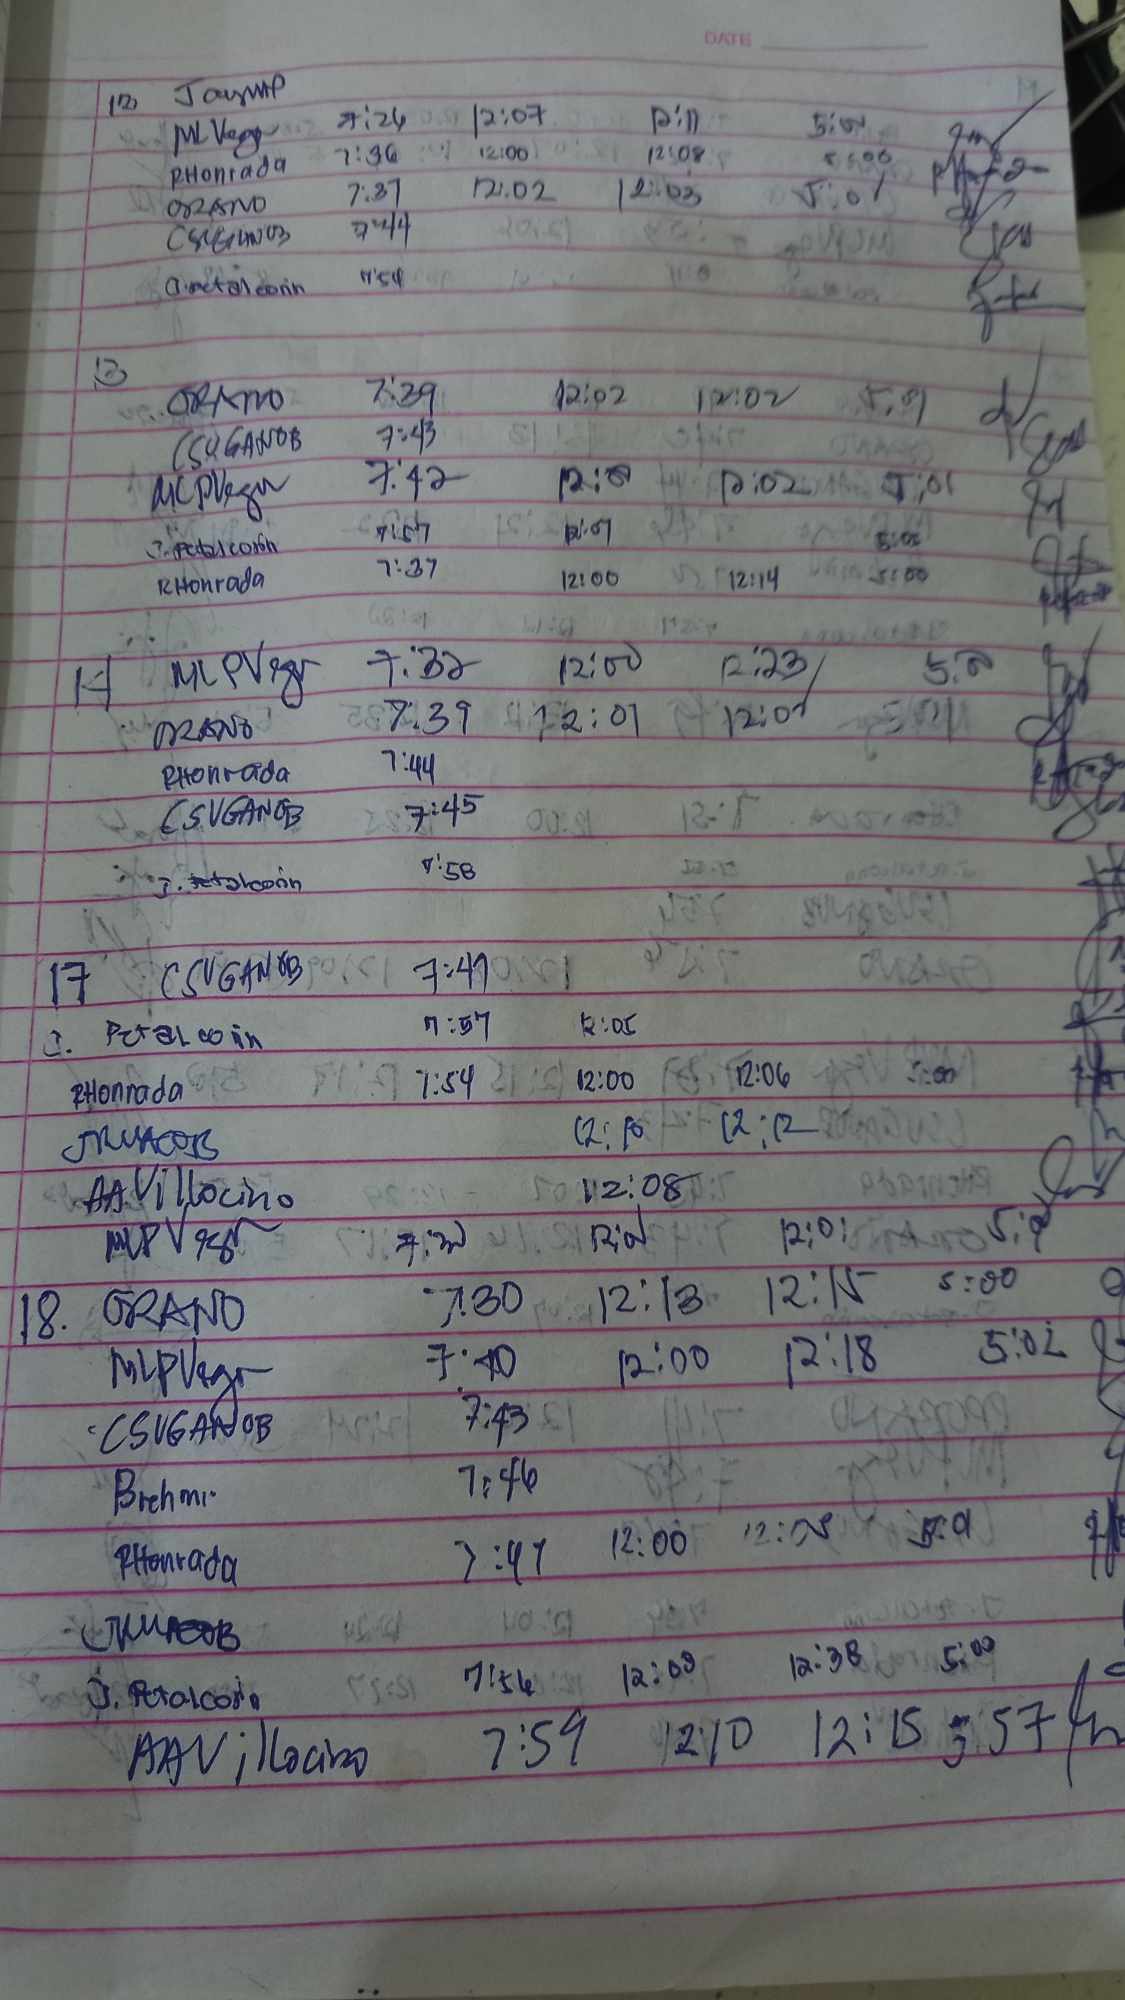 DATE
12
MLVega 7:26 12:07 12:11 5:01
RHonrada 7:36 12:00 12:08 5:00
ORANO 7:37 12:02 12:03 5:01
CSUGANOB 7:44
J. Petalcorin 7:54
13
ORANO 7:39 12:02 12:02 5:01
CSUGANOB 7:43
MLPVega 7:42 12:01 12:02 5:01
J. Petalcorin 7:57 12:01 5:00
RHonrada 7:37 12:00 12:14 5:00
14 MLPVega 7:32 12:00 12:23 5:00
ORANO 7:39 12:01 12:01
RHonrada 7:44
CSUGANOB 7:45
J. Petalcorin 7:58
17 CSUGANOB 7:47
J. Petalcorin 7:57 12:05
RHonrada 7:54 12:00 12:06 5:00
12:10 12:12
AAVillocino 12:08
MLPVega 12:01
18. ORANO 7:30 12:13 12:15 5:00
MLPVega 7:40 12:00 12:18 5:02
CSUGANOB 7:43
Brehmi. 7:46
RHonrada 7:47 12:00 12:08 5:01
J. Petalcorin 7:56 12:09 12:38 5:00
AAVillocino 7:59 12:10 12:15 57